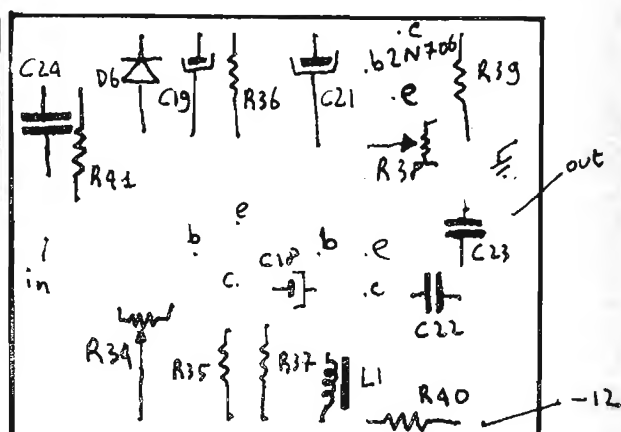 C24
D6
C19
R36
C21
.c
.b 2N706
.e
R39
R38
R41
out
e
b
b
.e
C18
c.
.c
C23
in
C22
R34
R35
R37
L1
R40
-12